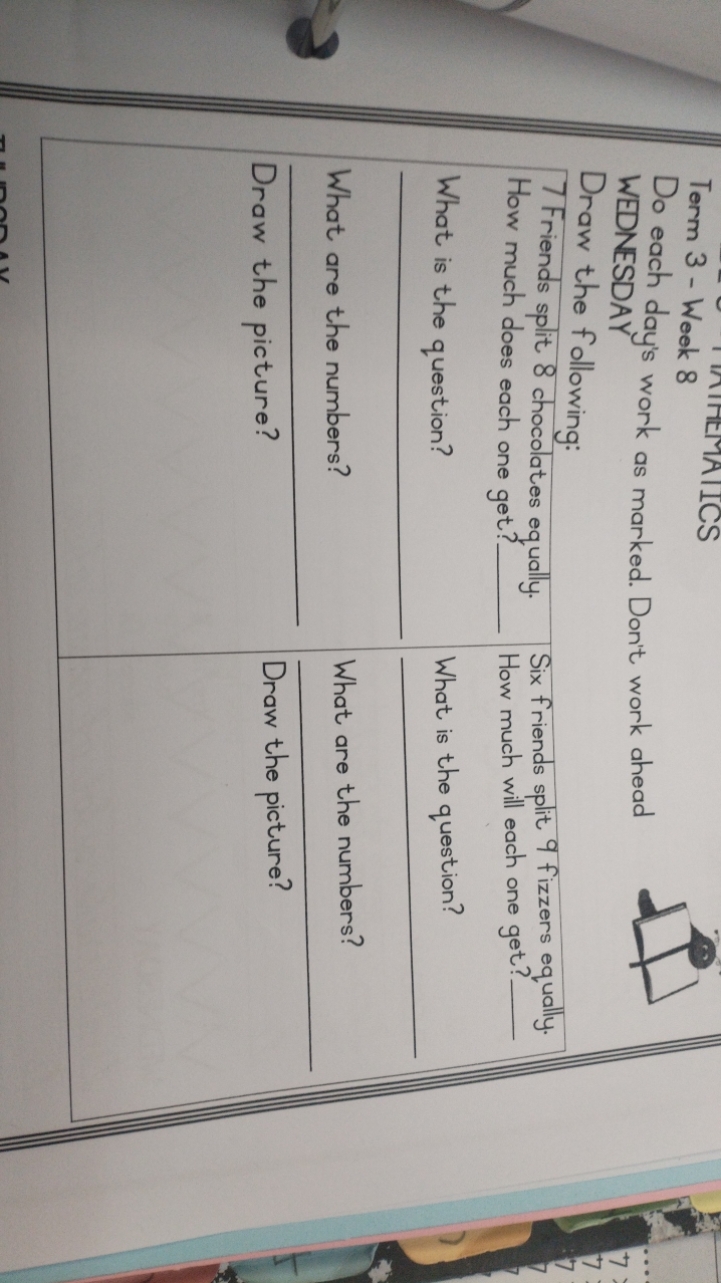 MATHEMATICS
Term 3 - Week 8
Do each day's work as marked. Don't work ahead
WEDNESDAY
Draw the following:
7 Friends split 8 chocolates equally.
How much does each one get?____
What is the question?
What are the numbers?
Draw the picture?
Six friends split 9 fizzers equally.
How much will each one get?____
What is the question?
What are the numbers?
Draw the picture?
THURSDAY